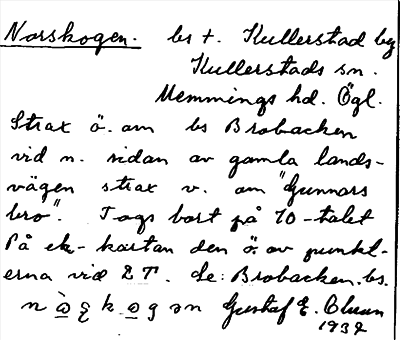 Norskogen. bs t. Kullerstad by
Kullerstads sn.
Memmings hd. Ögl.
Strax ö. om bs Brobacken
vid n. sidan av gamla lands-
vägen strax v. om "Gunnars
bro". Togs bort på 70-talet
På ek-kartan den ö. av punkt-
erna vid ET. Se: Brobacken. bs.
Gustaf E. Olsson
1932